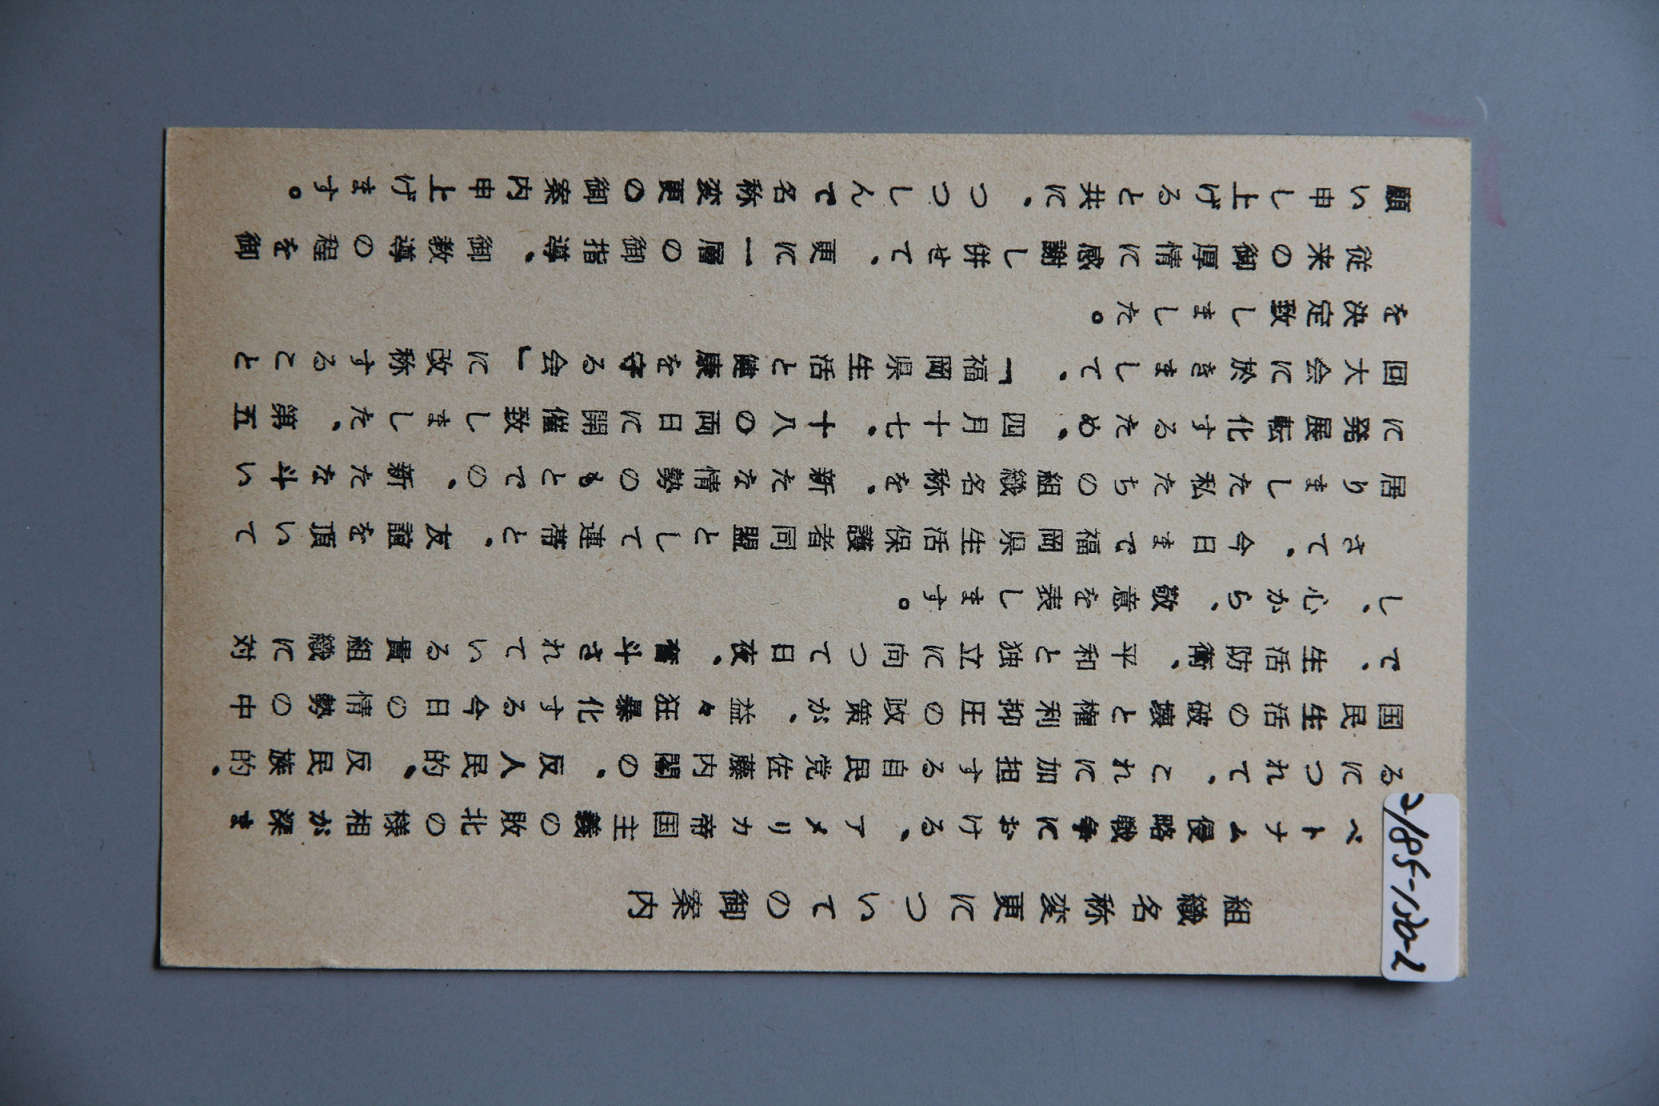 組織名称変更についての御案内
ベトナム侵略戦争における、アメリカ帝国主義の敗北の様相が深ま
るにつれて、これに加担する自民党佐藤内閣の、反人民的、反民族的、
国民生活の破壊と権利抑圧の政策が、益々狂暴化する今日の情勢の中
で、生活防衛、平和と独立に向つて日夜、奮斗されている貴組織に対
し、心から、敬意を表します。
さて、今日まで福岡県生活保護者同盟として連帯と、友誼を頂いて
居りました私たちの組織名称を、新たな情勢のもとでの、新たな斗い
に発展転化するため、四月十七、十八の両日に開催致しました、第五
回大会に於きまして、「福岡県生活と健康を守る会」に改称すること
を決定致しました。
従来の御厚情に感謝し併せて、更に一層の御指導、御教導の程を御
願い申し上げると共に、つつしんで名称変更の御案内申上げます。